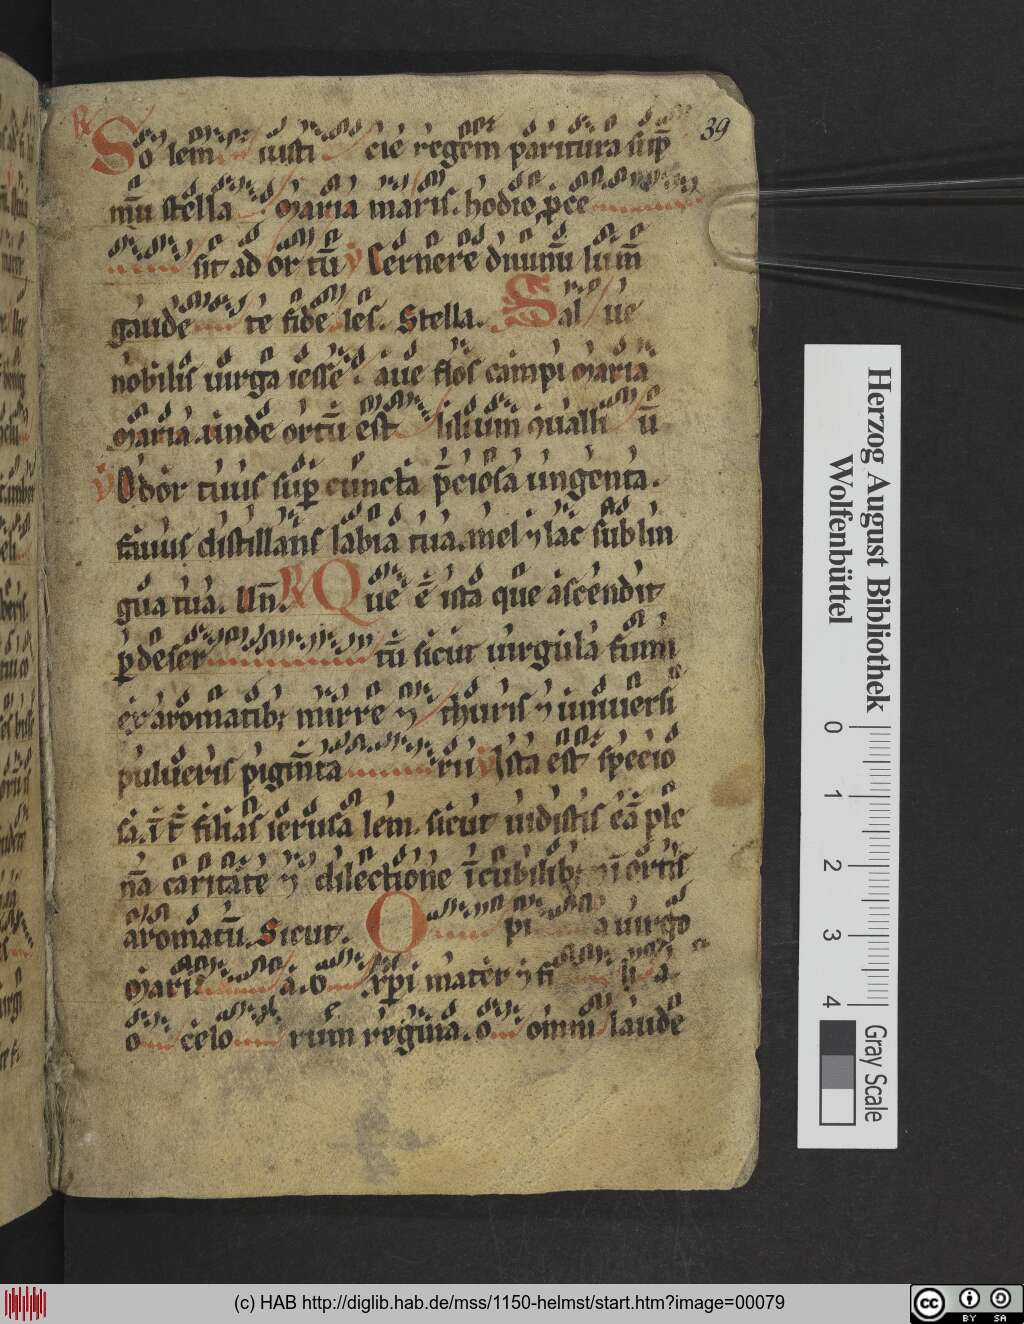 39
℟ So lem iusti cie regem paritura sup̄
mū stella maria maris. hodie p̄ce
sit ad or tū ℣ Cernere diuinū lum̄
gaude te fide les. Stella. Sal ue
nobilis uirga iesse. aue flos campi maria
maria unde ortū est lilium 9ualli ū
℣ Odor tuus sup̲ cuncta p̄ciosa ungenta.
fauus distillans labia tua. mel ⁊ lac sub lin
gua tua. Un̄. ℟ Que ē ista que ascendit
p̲ deser tū sicut uirgula fumi
ex aromatib; mirre ⁊ thuris ⁊ uniuersi
pulueris pigm̄ta rii ℣ Ista est specio
sa. ī t̄ filias ierusa lem. sicut uidistis eā ple
nā caritate ⁊ dilectione ī cubilib; ⁊ ī ortis
aromatū. Sicut. O pi a uirgo
mari a. o xp̄i mater ⁊ fi li a
o celo rum regina. o omni laude
Herzog August Bibliothek
Wolfenbüttel
0 1 2 3 4
Gray Scale
(c) HAB http://diglib.hab.de/mss/1150-helmst/start.htm?image=00079
cc BY SA